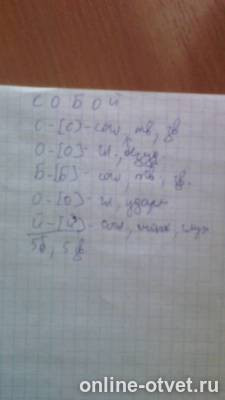 С О Б О Й
С-[С]- согл, тв, зв
О-[О]- гл., безуд
Б-[Б]- согл, тв, зв.
О-[О]- гл, ударн
Й-[Й]- согл, мягк, глух
5б, 5 зв
online-otvet.ru